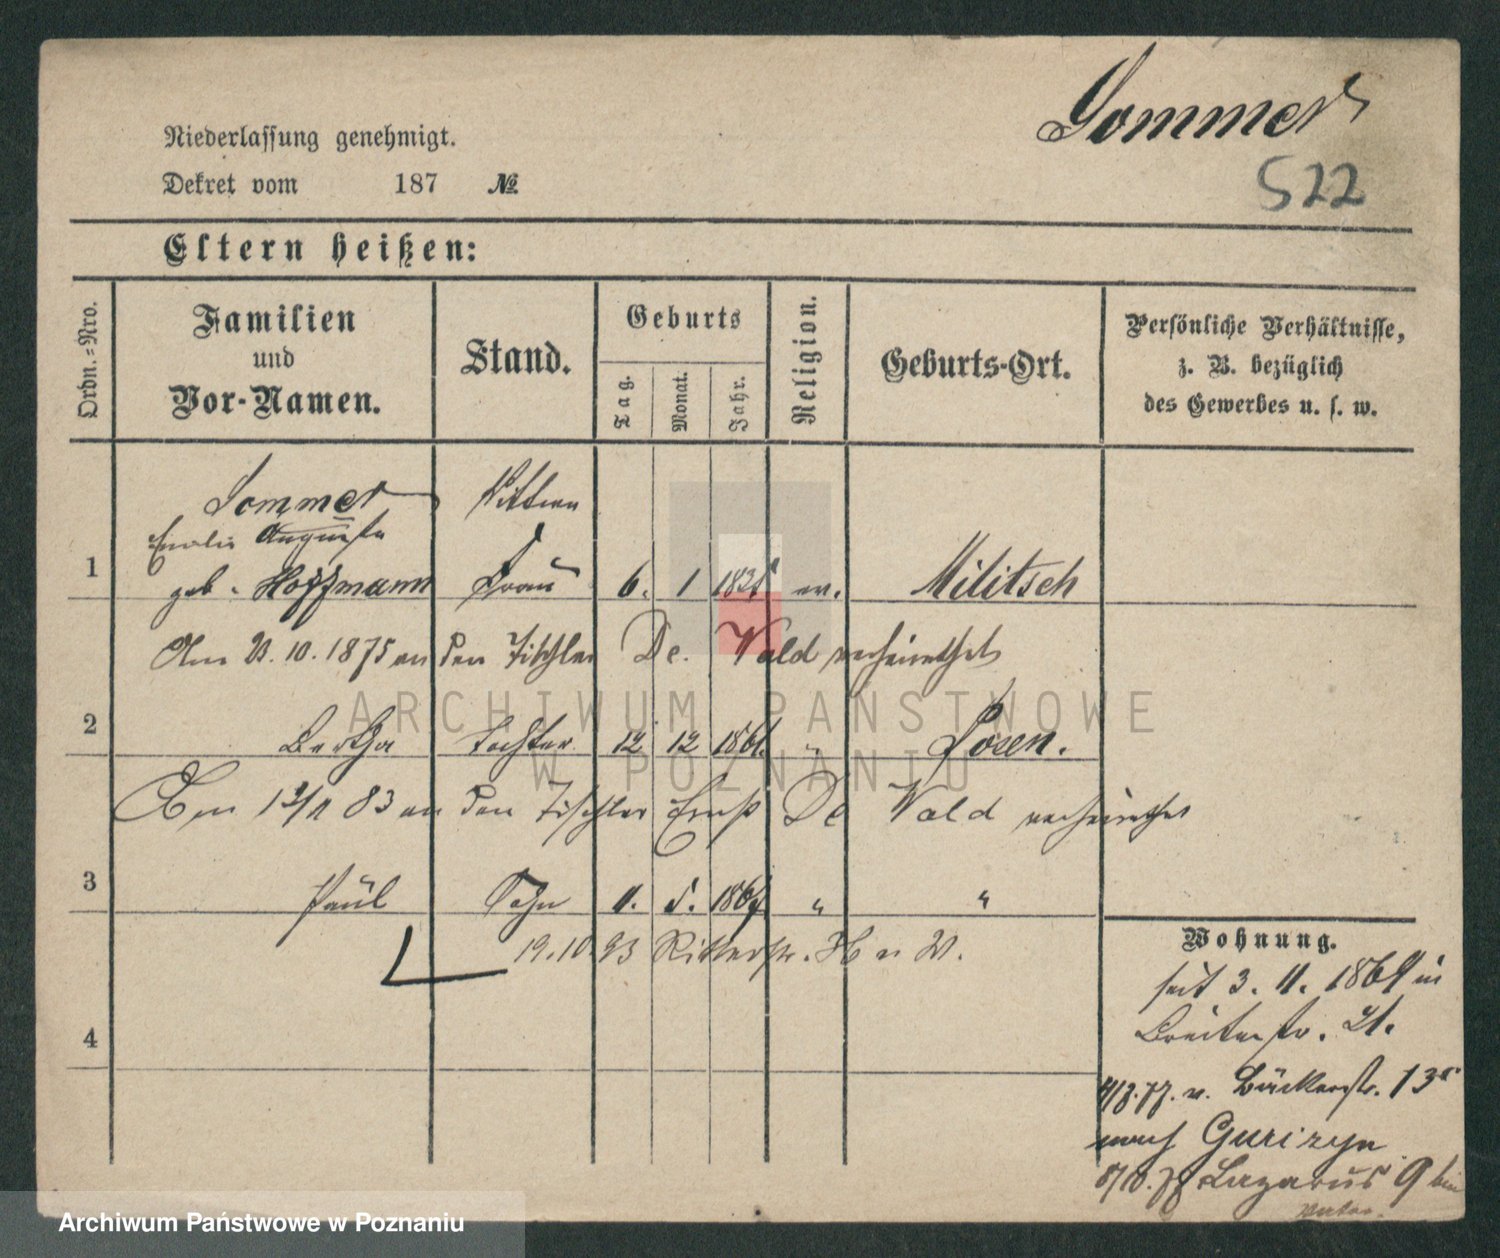 Sommer
522
Niederlassung genehmigt.
Dekret vom 187 №
Eltern heißen:
Ordn.=Nro.
Familien und Vor-Namen.
Stand.
Geburts
Tag.
Monat.
Jahr.
Religion.
Geburts-Ort.
Persönliche Verhältnisse,
z. B. bezüglich
des Gewerbes u. s. w.
Sommer
Emilie Auguste
1 geb. Hoffmann Frau 6. 1 ev. Militsch
10. 1875 an den Tischler De. Wald verheirathet
2 Bertha Tochter 12 12 1861. " Posen.
Am 83 an den Tischler Ernst De Wald verheirathet
3 Paul Sohn 11. 5. " "
19.10.93 Ritterstr.
4
Wohnung.
seit 3. 11. 1869 in
Breitestr. 21.
v. Bäckerstr. 13
nach Gurczyn
Lazarus 9 bei
ARCHIWUM PAŃSTWOWE
W POZNANIU
Archiwum Państwowe w Poznaniu